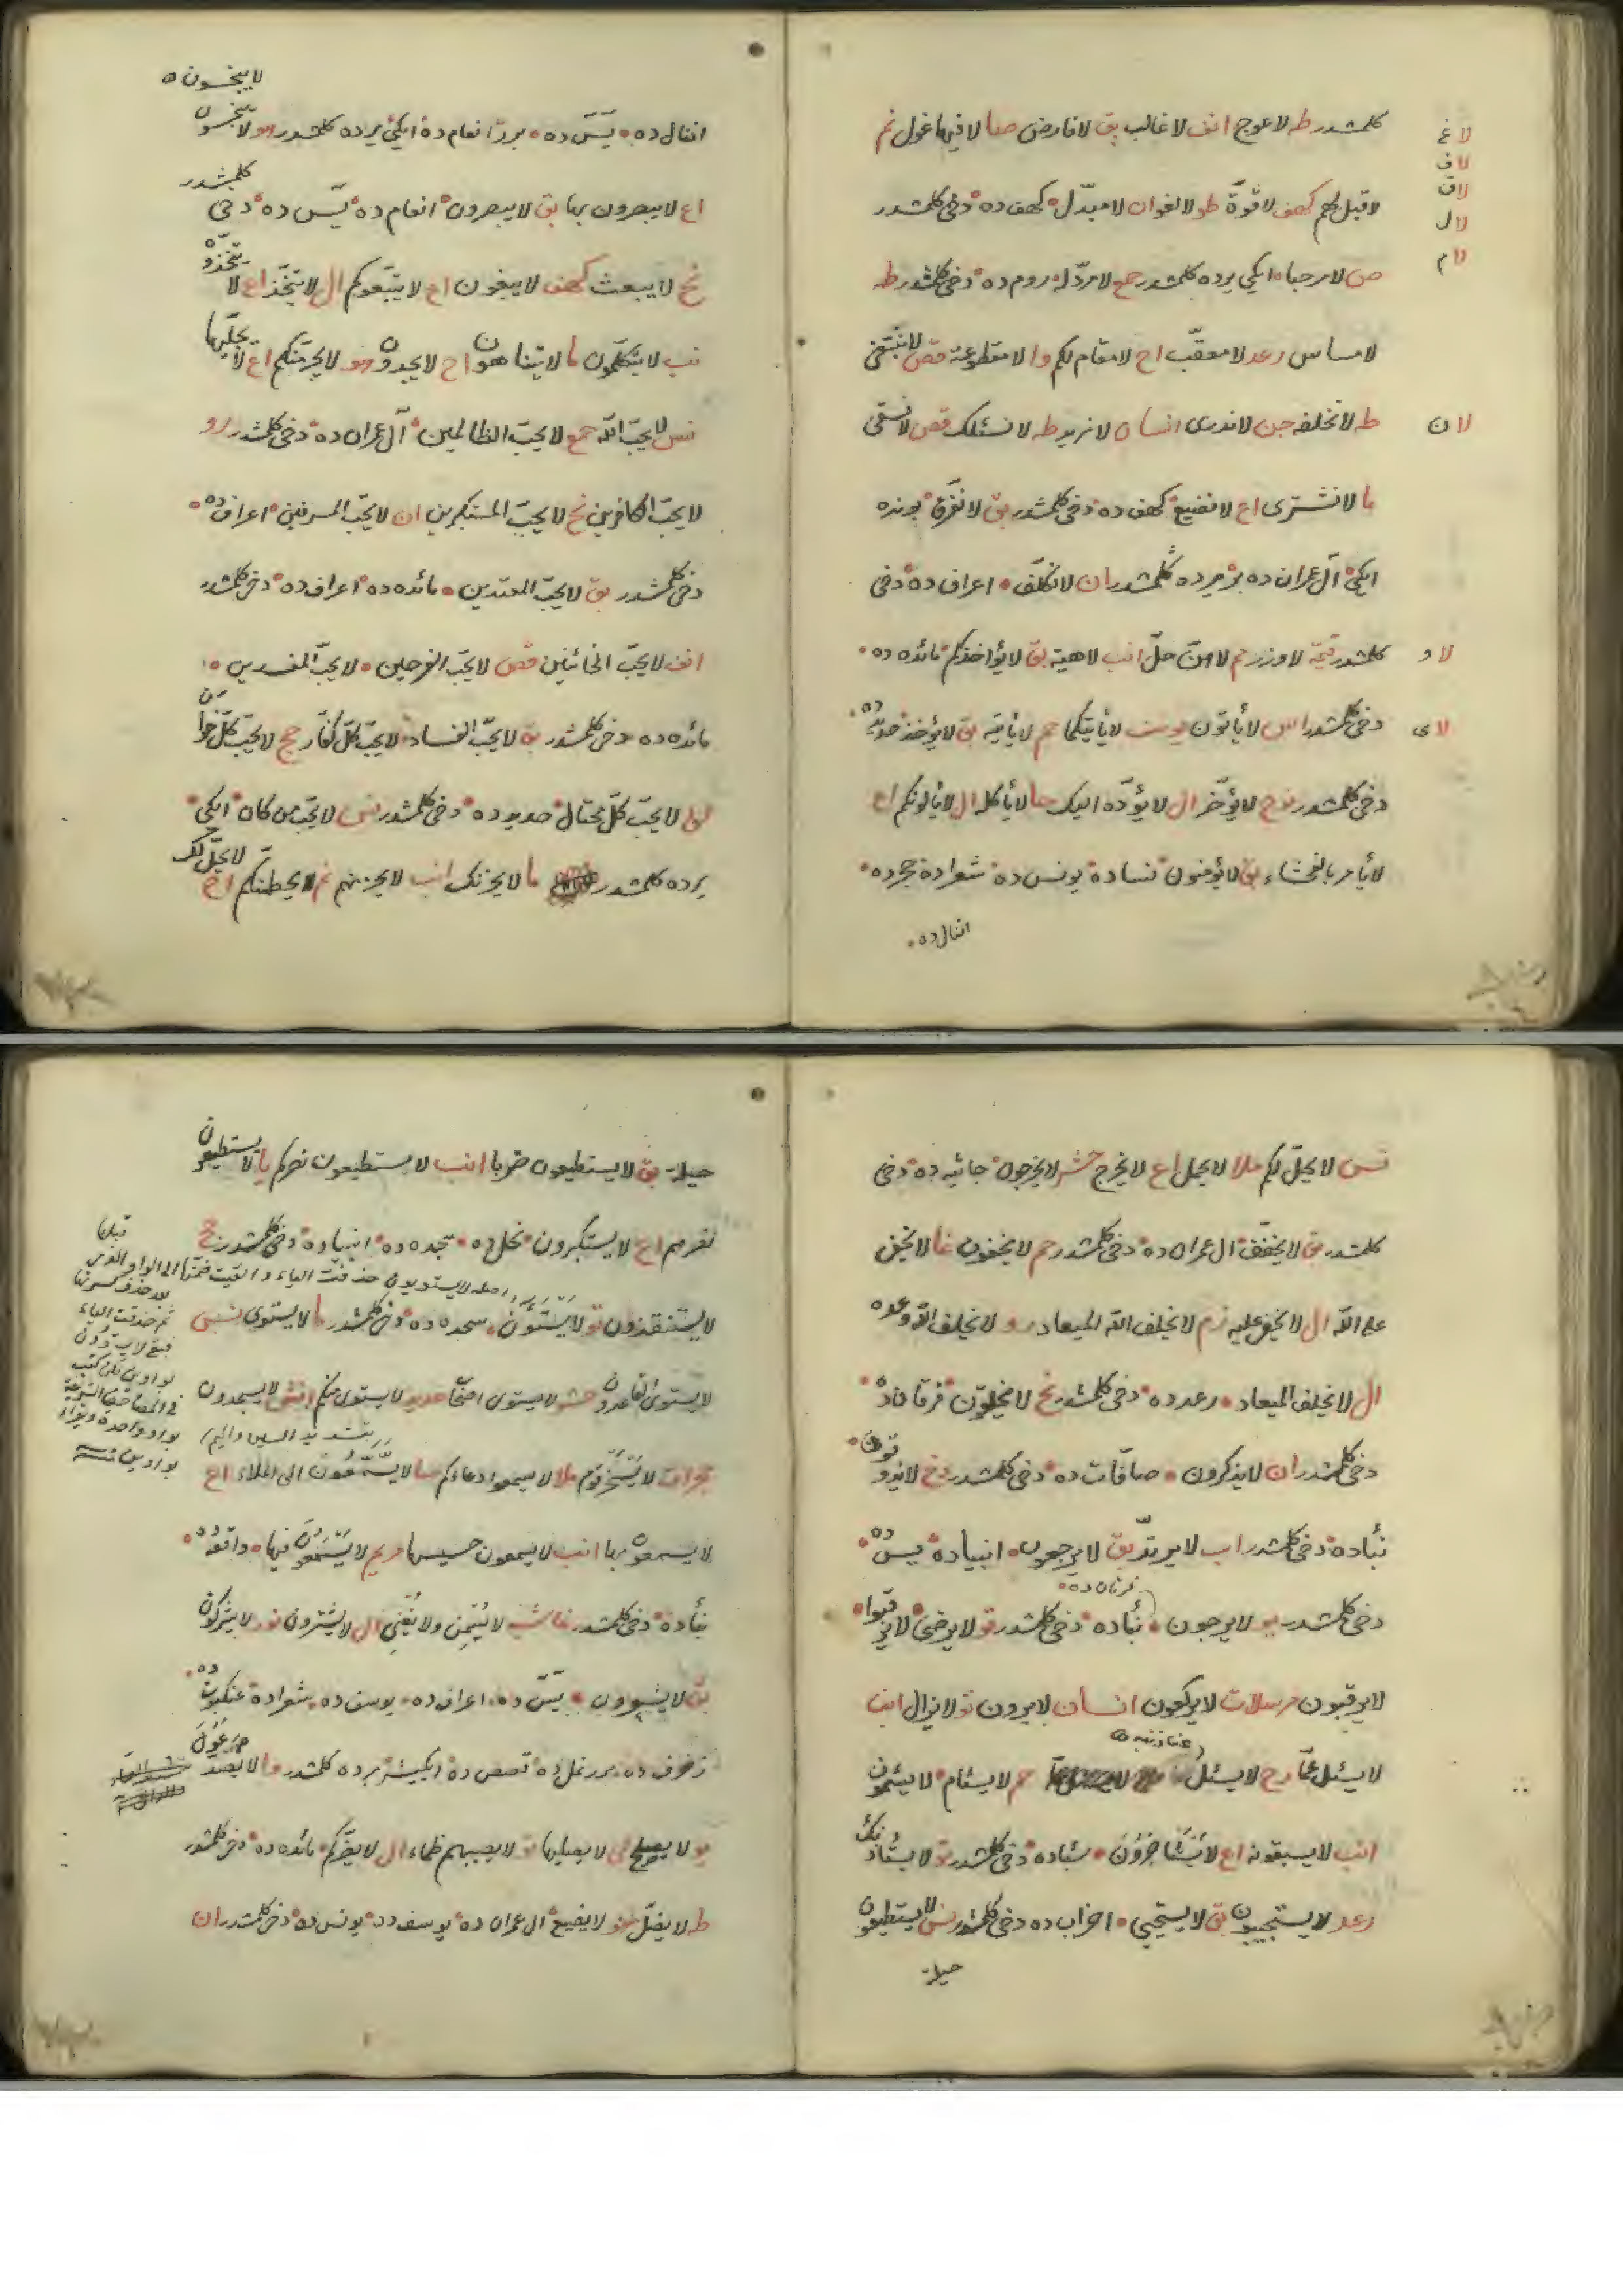 كلمشدر طه لا عوج انف لا غالب بق لا فارض صا لا فيها غول نم
لاغ
لاف
لاق
لال
لا قبل لهم كهف لا قوة طو لا لغو ان لا مبدّل كهف ده دخى كلمشدر
لام
ص لا مرحبا ايكى يرده كلمشدر جمع لا مردّ له روم ده دخى كلمشدر طه
لا مساس رعد لا معقّب اح لا مقام لكم وا لا مقطوعة قص لا نبتغى
لان
ط لا نخلفه جن لا ندرى انسان لا نريد طه لا نسئلك قص لا نسقى
ما لا نشترى اع لا نضيع كهف ده دخى كلمشدر بق لا نفرّق بونده
ايكى آل عمران ده بر يرده كلمشدر ان لا نكلّف اعراف ده دخى
لاو
كلمشدر قيمة لا وزر لا هنّ حلّ انب لا هية بق لا يؤاخذكم مائده ده
لاى
دخى كلمشدر اس لا يأتون يوسف لا يأتيكما حم لا يأتيه بق لا يؤخذ حديد ده
دخى كلمشدر نوح لا يؤخّر ال لا يؤدّه اليك حا لا يأكله ال لا يألونكم اع
لا يأمر بالفحشاء بق لا يؤمنون نساده يونس ده شعراده حجرده
انفال ده
لا يبخسون
انفال ده يس ده برر انعام ده ايكى يرده كلمشدر هو لا يبخسون
اع لا يبصرون بها بق لا يبصرون انعام ده يس ده دخى كلمشدر
نح لا يبعث كهف لا يبغون اع لا يتّبعوكم ال لا يتّخذ اع لا يتخذوه
نب لا يتكلّمون ما لا يتناهون اح لا يجدون هو لا يجرمنكم اع لا يجلّيها
نس لا يحبّ الله جمع لا يحبّ الظالمين آل عمران ده دخى كلمشدر رو
لا يحبّ الكافرين نح لا يحبّ المستكبرين ان لا يحبّ المسرفين اعراف ده
دخى كلمشدر بق لا يحبّ المعتدين مائده ده اعراف ده دخى كلمشدر
انف لا يحبّ الخائنين قص لا يحبّ الفرحين لا يحبّ المفسدين
مائده ده دخى كلمشدر بق لا يحبّ الفساد لا يحبّ كلّ كفّار حج لا يحبّ كلّ خوّان
لق لا يحبّ كلّ مختال حديد ده دخى كلمشدر نس لا يحبّ من كان ايكى
يرده كلمشدر ما لا يحزنك انب لا يحزنهم نم لا يحطمنكم اح لا يحلّ لك
نس لا يحلّ لكم ملا لا يحمل اع لا يخرج حشر لا يخرجون جاثيه ده دخى
كلمشدر بق لا يخفّف ال عمران ده دخى كلمشدر حم لا يخفون غا لا يخفى
على الله ال لا يخفى عليه زم لا يخلف الله الميعاد رو لا يخلف الله وعده
ال لا يخلف الميعاد رعد ده دخى كلمشدر نح لا يخلقون فرقان ده
دخى كلمشدر ان لا يذكرون صافات ده دخى كلمشدر دخ لا يذوقون
نبأده دخى كلمشدر اب لا يرتدّ بق لا يرجعون انبياده يس ده
فرقان ده
دخى كلمشدر يو لا يرجون نبأده دخى كلمشدر تو لا يرضى لا يرقبوا
لا يرقبون مرسلات لا يركعون انسان لا يرون تو لا يزال انب
لا يسئل عمّا رح لا يسئل حم لا يسئام لا يسئمون
انب لا يسبقونه اع لا يستأخرون سبأده دخى كلمشدر تو لا يستأذنك
رعد لا يستجيبون بق لا يستحيى احزاب ده دخى كلمشدر نس لا يستطيعون
حيلة
حيلة بق لا يستطيعون ضربا انب لا يستطيعون نصركم يا لا يستطيعون
نصرهم اع لا يستكبرون نحل ده سجده ده انبياده دخى كلمشدر حج
لا يستنقذون تو لا يستوون سجده ده دخى كلمشدر ما لا يستوى نس
لا يستوى القاعدون حشر لا يستوى اصحاب حديد لا يستوى منكم انش لا يسجدون
اصله لا يستويون حذفت الياء والقيت ضمتها الى الواو
ثم حذفت الياء
بتشديد السين والميم
حجرات لا يسخر قوم ملا لا يسمعوا دعاءكم صا لا يسّمّعون الى الملاء اع
لا يسمعون بها انب لا يسمعون حسيسها مريم لا يسمعون فيها واقعه ده
نبأده دخى كلمشدر غاشيه لا يسمن ولا يغنى ال لا يشترون نور لا يشركون
بق لا يشعرون يس ده اعراف ده يوسف ده شعراده عنكبوت ده
زخرف ده برر نمل ده قصص ده ايكيشر يرده كلمشدر وا لا يصدّعون
يو لا يصلح لى لا يصليها تو لا يصيبهم ظماء ال لا يضرّكم مائده ده دخى كلمشدر
طه لا يضلّ تو لا يضيع ال عمران ده يوسف ده يونس ده دخى كلمشدر ان